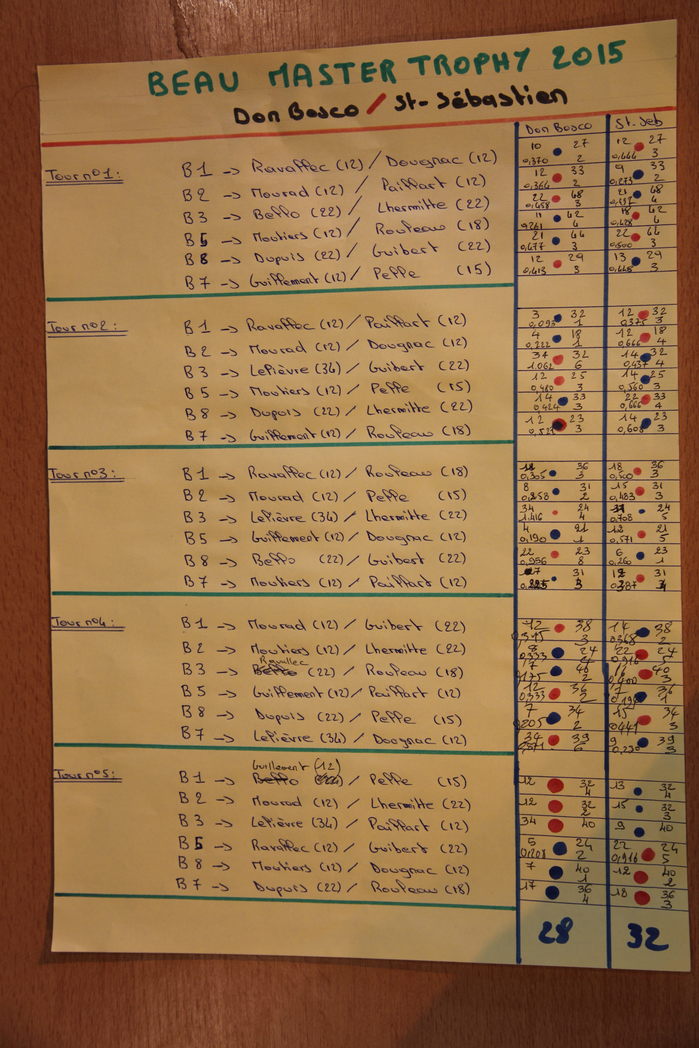 BEAU MASTER TROPHY 2015
Don Bosco / St-Sébastien
Don Bosco St. Seb
Tour n°1:
B1 -> Ravallec (12) / Dougnac (12) 10 27 12 27
0,370 2 0,444 3
B2 -> Mourad (12) / Paillart (12) 12 33 9 33
0,364 2 0,273 2
B3 -> Bello (22) / Lhermitte (22) 22 48 21 48
0,458 3 0,437 4
B5 -> Moutiers (12) / Rouleau (18) 11 42 18 42
0,261 4 0,428 4
B8 -> Dupuis (22) / Guibert (22) 21 44 22 44
0,477 3 0,500 3
B7 -> Guillement (12) / Pelle (15) 12 29 13 29
0,413 3 0,448 3
Tour n°2:
B1 -> Ravallec (12) / Paillart (12) 3 32 12 32
0,093 1 0,375 3
B2 -> Mourad (12) / Dougnac (12) 4 18 12 18
0,222 1 0,666 4
B3 -> Lelièvre (34) / Guibert (22) 34 32 14 32
1.062 6 0,437 4
B5 -> Moutiers (12) / Pelle (15) 12 25 14 25
0,480 3 0,560 3
B8 -> Dupuis (22) / Lhermitte (22) 14 33 22 33
0,424 3 0,666 4
B7 -> Guillement (12) / Rouleau (18) 12 23 14 23
0,521 3 0,608 3
Tour n°3:
B1 -> Ravallec (12) / Rouleau (18) 36 18 36
0,305 3 0,500 3
B2 -> Mourad (12) / Pelle (15) 8 31 15 31
0,258 2 0,483 3
B3 -> Lelièvre (34) / Lhermitte (22) 34 24 24
1.416 4 0,708 5
B5 -> Guillement (12) / Dougnac (12) 4 21 12 21
0,190 1 0,571 5
B8 -> Bello (22) / Guibert (22) 22 23 6 23
0,956 8 0,260 1
B7 -> Moutiers (12) / Paillart (12) 31 12 31
3 0,387
Tour n°4:
B1 -> Mourad (12) / Guibert (22) 12 38 14 38
0,315 3 0,368 2
B2 -> Moutiers (12) / Lhermitte (22) 8 24 22 24
0,333 0,916 5
Ravallec
B3 -> Bello (22) / Rouleau (18) 7 40
0,175 2 0,400 3
B5 -> Guillement (12) / Paillart (12) 12 36 7 36
0,333 2 0,194 1
B8 -> Dupuis (22) / Pelle (15) 7 34 15 34
0,205 2 0,441 3
B7 -> Lelièvre (34) / Dougnac (12) 34 39 9 39
0,871 6 0,230 3
Tour n°5:
Guillement (12)
B1 -> Bello / Pelle (15) 12 32 13 32
4 4
B2 -> Mourad (12) / Lhermitte (22) 12 32 15 32
2 3
B3 -> Lelièvre (34) / Paillart (12) 34 40 9 40
B5 -> Ravallec (12) / Guibert (22) 5 24 22 24
0,208 2 0,916 5
B8 -> Moutiers (12) / Dougnac (12) 7 40 12 40
1 2
B7 -> Dupuis (22) / Rouleau (18) 17 36 18 36
4 3
28 32